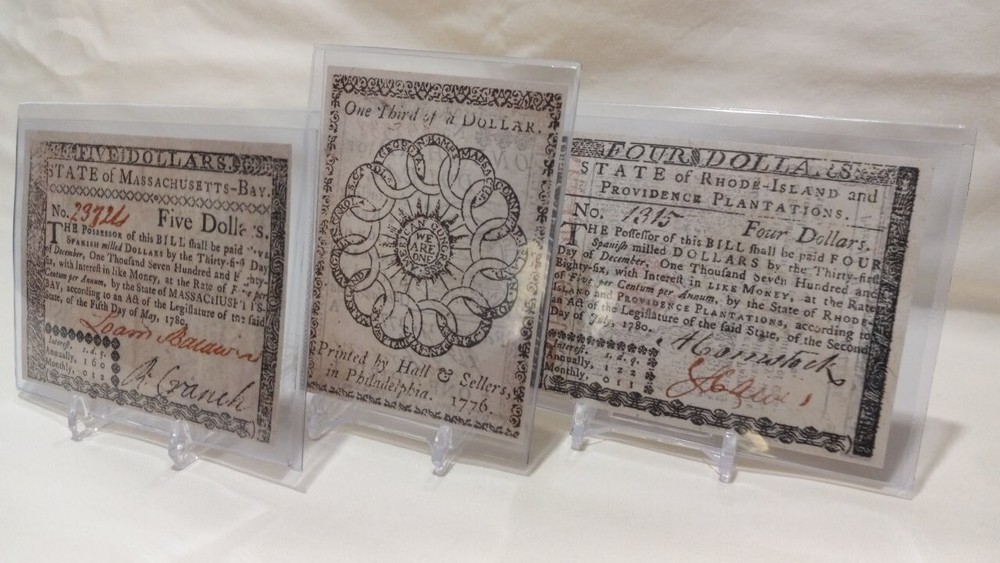 FIVE DOLLARS.
STATE of MASSACHUSETTS-BAY.
No. 23724 Five Dolla s.
THE Possessor of this BILL shall be paid Five
SPANISH milled DOLLARS by the Thirty-first Day
of December, One Thousand Seven Hundred and
six, with Interest in like Money, at the Rate of per
Centum per Annum, by the State of MASSACHUSETTS
BAY, according to an Act of the Legislature of the said
State, of the Fifth Day of May, 1780.
Interest. s. d. q.
Annually, 1 6 0
Monthly, 0 1 2
R. Cranch
One Third of a DOLLAR.
AMERICAN CONGRESS
WE ARE ONE
Printed by Hall & Sellers,
in Philadelphia. 1776.
FOUR DOLLA S.
STATE of RHODE-ISLAND and
PROVIDENCE PLANTATIONS.
No. 1315 Four Dollars.
THE Possessor of this BILL shall be paid FOUR
Spanish milled DOLLARS by the Thirty-first
Day of December, One Thousand Seven Hundred and
Eighty-six, with Interest in LIKE MONEY, at the Rate
of Five per Centum per Annum, by the State of RHODE-
ISLAND and PROVIDENCE PLANTATIONS, according to
an Act of the Legislature of the said State, of the Second
Day of July, 1780.
Interest. s. d. q.
Annually, 1 2 2
Monthly, 0 1 1
A Comstock